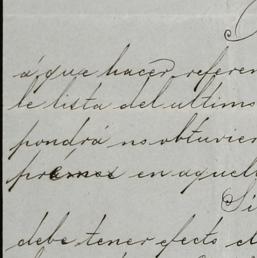 á que hacer referen
te lista del ultimo
pondrá no obtuvier
premos en aquel
Si
debe tener efecto el